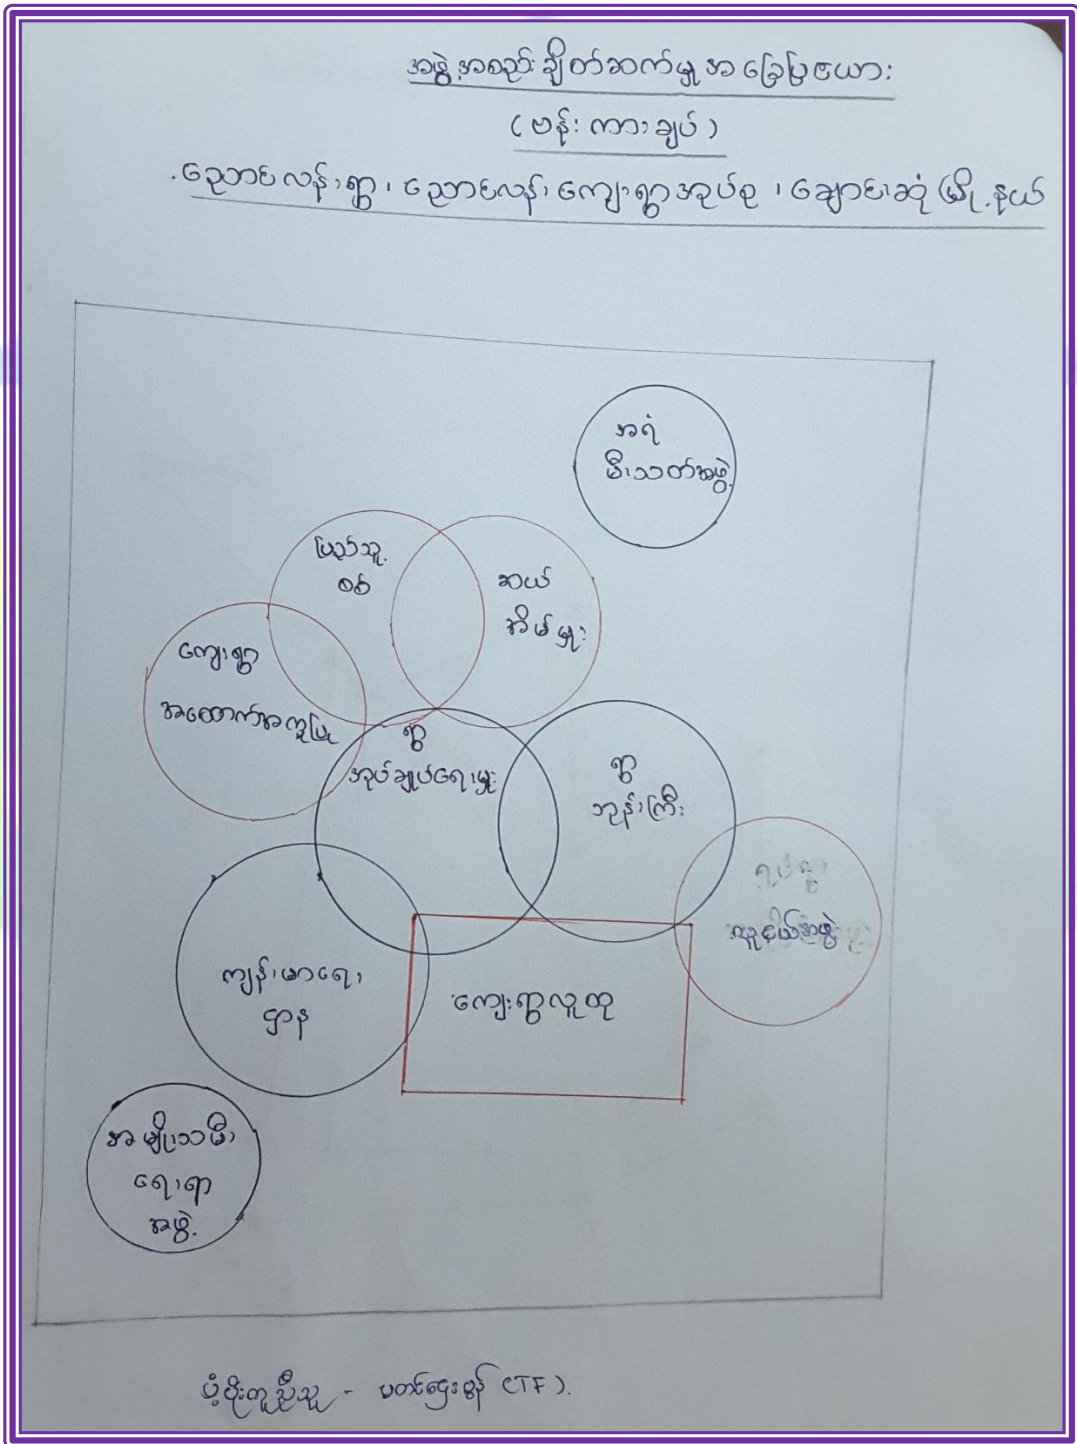 အဖွဲ့အစည်းချိတ်ဆက်မှုအခြေပြဇယား
(ဗန်းကားချပ်)
ညောင်လန်းရွာ၊ ညောင်လန်းကျေးရွာအုပ်စု၊ ချောင်းဆုံမြို့နယ်
အရံ
မီးသတ်အဖွဲ့
ပြည်သူ့
စစ်
ဆယ်
အိမ်မှူး
ကျေးရွာ
အထောက်အကူပြု
ရွာ
အုပ်ချုပ်ရေးမှူး
ရွာ
ဘုန်းကြီး
ရပ်ရွာ
လူငယ်အဖွဲ့
ကျန်းမာရေး
ဌာန
ကျေးရွာလူထု
အမျိုးသမီး
ရေးရာ
အဖွဲ့
ပံ့ပိုးကူညီသူ - (TF).